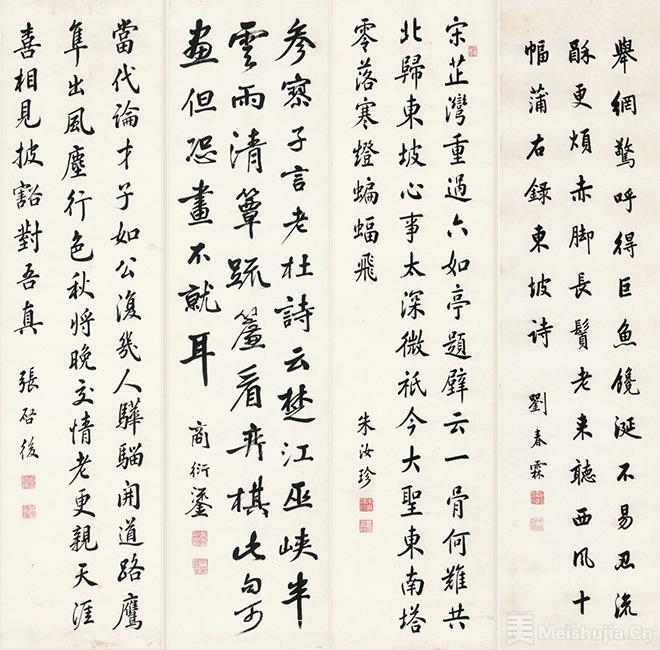 舉網驚呼得巨魚饞涎不易忍流
酥更煩赤脚長鬚老来聽西风十
幅蒲右錄東坡诗
劉春霖
宋芷灣重過六如亭題壁云一骨何難共
北歸東坡心事太深微祇今大聖東南塔
零落寒燈蝙蝠飛
朱汝珍
参寥子言老杜詩云楚江巫峡半
雲雨清簟疏簾看弈棋此句可
畫但恐畫不就耳
商衍鎏
當代論才子如公復幾人驊騮開道路鷹
隼出風塵行色秋将晚交情老更親天涯
喜相見披豁對吾真
張啓後
美 Meishujia.Cn